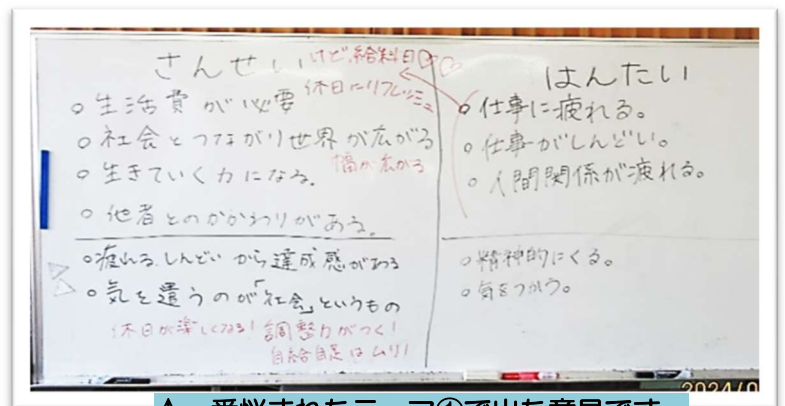 さんせい
けど、給料日♡♡
休日にリフレッシュ
○生活費が必要
○社会とつながり世界が広がる
幅が広がる
○生きていく力になる。
○他者とのかかわりがある。
○疲れる、しんどいから達成感がある
○気を遣うのが「社会」というもの
休日が楽しくなる! 調整力がつく!
自給自足はムリ!
はんたい
○仕事に疲れる。
○仕事がしんどい。
○人間関係が疲れる。
○精神的にくる。
○気をつかう。
2024/0